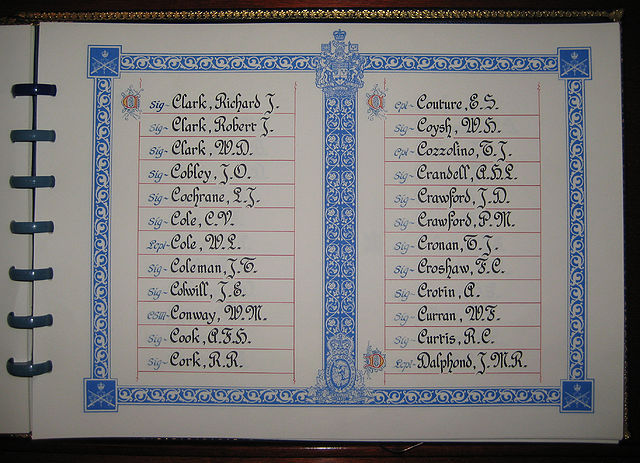 C
Sig~ Clark, Richard J.
Sig~ Clark, Robert J.
Sig~ Clark, W.D.
Sig~ Cobley, J.O.
Sig~ Cochrane, L.J.
Sig~ Cole, C.V.
Lcpl~ Cole, W.L.
Sig~ Coleman, J.T.
Sig~ Colwill, J.E.
CSM~ Conway, W.M.
Sig~ Cook, A.F.H.
Sig~ Cork, R.R.
C
Cpl~ Couture, E.S.
Sig~ Coysh, W.H.
Cpl~ Cozzolino, T.J.
Sig~ Crandell, A.H.L.
Sig~ Crawford, J.D.
Sig~ Crawford, P.M.
Sig~ Cronan, T.J.
Sig~ Croshaw, F.C.
Sig~ Crotin, A.
Sig~ Curran, W.F.
Sig~ Curtis, R.C.
D
Lcpl~ Dalphond, J.M.R.